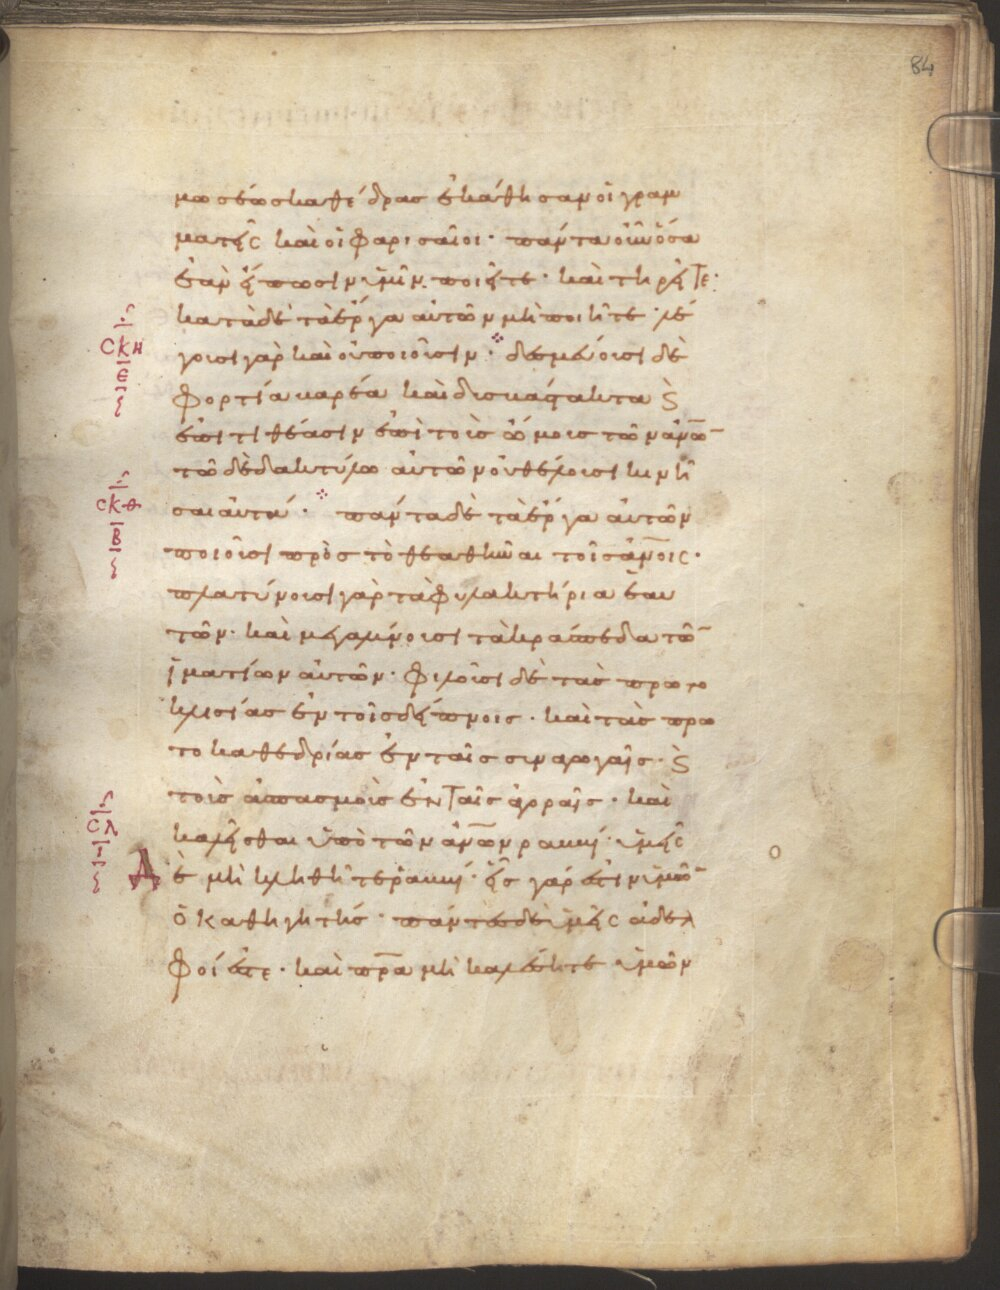 84
μωσέως καθέδρας ἐκάθησαν οἱ γραμ
ματεῖς καὶ οἱ φαρισαῖοι· πάντα οὖν ὅσα
ἐὰν εἴπωσιν ὑμῖν ποιεῖτε· καὶ τηρεῖτε·
κατὰ δὲ τὰ ἔργα αὐτῶν μὴ ποιῆτε· λέ
γουσι γὰρ καὶ οὐ ποιοῦσιν· δεσμεύουσι δὲ
φορτία βαρέα καὶ δυσβάστακτα ϗ
ἐπιτιθέασιν ἐπὶ τοὺς ὤμους τῶν ἀνω̅
τῶ δὲ δακτύλω αὐτῶν οὐ θέλουσι κινῆ
σαι αὐτά· πάντα δὲ τὰ ἔργα αὐτῶν
ποιοῦσι πρὸς τὸ θεαθῆναι τοῖς ἀνοις·
πλατύνουσι γὰρ τὰ φυλακτήρια ἑαυ
τῶν· καὶ μεγαλύνουσι τὰ κράσπεδα τῶ̅
ἱματίων αὐτῶν· φιλοῦσι δὲ τὰς πρωτο
κλισίας ἐν τοῖς δείπνοις· καὶ τὰς πρω
τοκαθεδρίας ἐν ταῖς συναγωγαῖς· ϗ
τοὺς ἀσπασμοὺς ἐν ταῖς ἀγοραῖς· καὶ
καλεῖσθαι ὑπὸ τῶν ἀνων ραββί· ὑμεῖς
δὲ μὴ κληθῆτε ραββί· εἷς γάρ ἐστιν ὑμῶ̅
ὁ καθηγητής· πάντες δὲ ὑμεῖς ἀδελ
φοί ἐστε· καὶ πρα μὴ καλέσητε ὑμῶν
σκη
ε
σκθ
β
σλ
ι